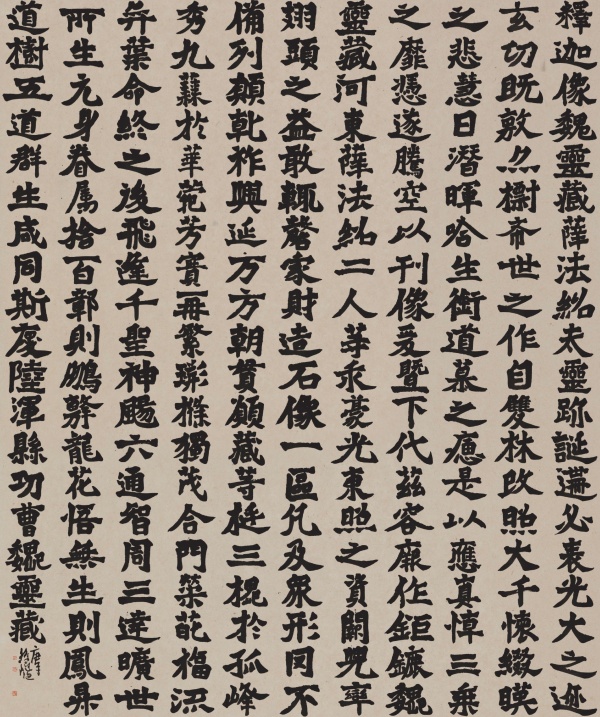 釋迦像魏靈藏薛法紹夫靈跡誕遘必表光大之迹
玄功既敷亦樹希世之作自雙林改照大千懷綴暎
之悲慧日潛暉唅生銜道慕之痛是以應真悼三乘
之靡憑遂騰空以刊像爰暨下代茲容厥作鉅鏕魏
靈藏河東薛法紹二人等求豪光東照之資闕兜率
翅頭之益敢輒罄家財造石像一區凡及眾形罔不
備列願乾祚興延万方朝貫願藏等挺三槐於孤峰
秀九蘂於華菀芳實再繁條獨茂合門榮葩福流
弈葉命終之後飛逢千聖神颺六通智周三達曠世
所生元身眷屬捨百鄣則鵬擊龍花悟無生則鳳昇
道樹五道群生咸同斯慶陸渾縣功曹魏靈藏